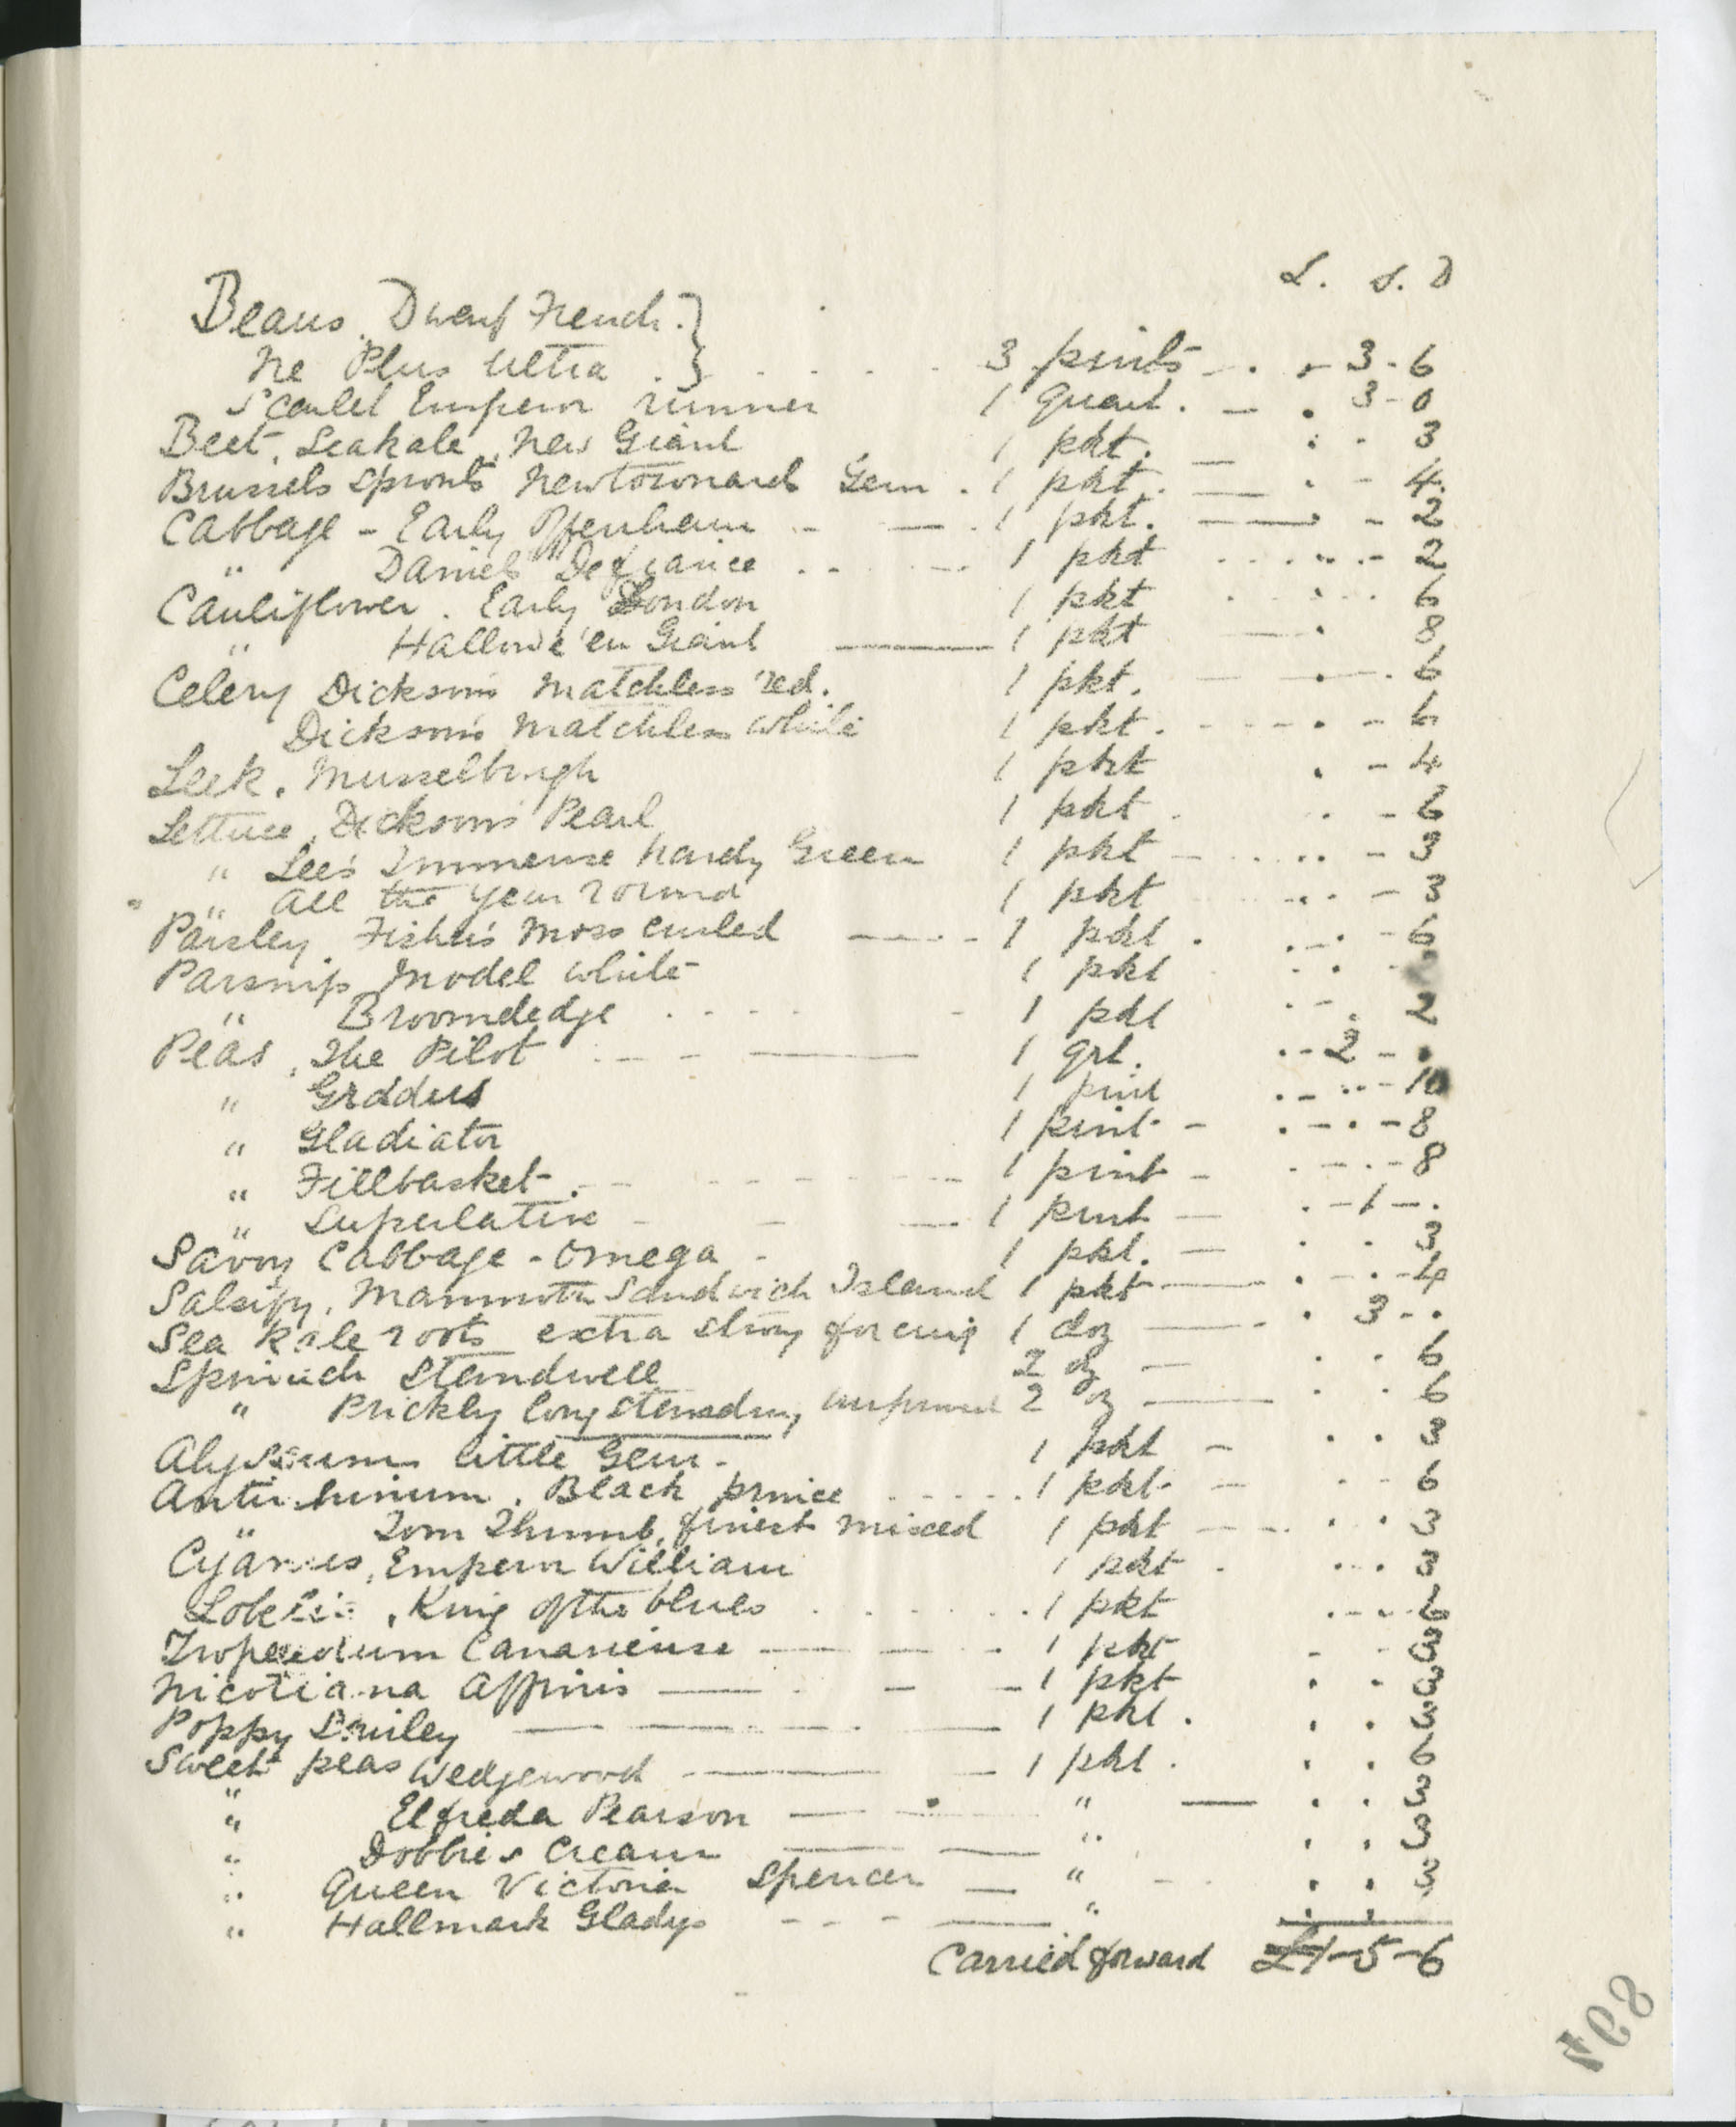 £. S. D
Beans, Dwarf French. }
Ne Plus Ultra . } . . . . 3 pints - . . - 3 - 6
Scarlet Emperor runner 1 quart. - . 3 - 0
Beet, Seakale, New Giant 1 pkt. - . - 3
Brussels Sprouts Newtownards Gem . 1 pkt. - . - 4
Cabbage - Early Offenham - - . 1 pkt. - . - 2
" Daniels Defiance . . - . 1 pkt . . . . - 2
Cauliflower . Early London 1 pkt . . . 6
" Hallowe'en Giant - 1 pkt - . 8
Celery Dicksons Matchless red. 1 pkt. - . - . 6
Dickson's Matchless white 1 pkt . - - - . - 6
Leek. Musselburgh 1 pkt . - 4
Lettuce, Dickson's Pearl 1 pkt . . . - 6
" Lee's Immense hardy Green 1 pkt - . . . . - 3
" All the year round 1 pkt . . . - 3
Parsley Fisher's Moss curled - . - 1 pkt . . - . - 6
Parsnip Model white 1 pkt . . .
" Broomhedge . . . . - 1 pkt . - . 2
Peas, The Pilot . - - - 1 qrt. . - 2 - .
" Gradus 1 pint . - . . - 10
" Gladiator 1 pint - . - . - 8
" Fillbasket . - - - - - 1 pint - . - . - 8
" Superlative - - - . 1 pint - . - 1 - .
Savoy Cabbage - Omega - 1 pkt. - . . 3
Salsify, Mammoth Sandwich Island 1 pkt - . - . - 4
Sea kale roots extra strong forcing 1 doz - . . 3 - .
Spinach Standwell 2 oz - . . 6
" Prickly long standing improved 2 oz - . . 6
Alyssum little Gem - 1 pkt - . . 3
Antirrhinum . Black prince . . . . . 1 pkt - - . . 6
" Tom Thumb, finest mixed 1 pkt - - . . . 3
Cyanus, Emperor William 1 pkt . . . . 3
Lobelia , King of the blues . . . . . . 1 pkt . - . . 6
Tropaeolum Canariense - - - . 1 pkt - - 3
Nicotiana Affinis - . - - 1 pkt . . 3
Poppy Smiley - - - . - 1 pkt . . . 3
Sweet peas Wedgewood - - 1 pkt . . . 6
" Elfreda Pearson - . " - . . 3
" Dobbies Cream - - " . . 3
" Queen Victoria Spencer - " - . . 3
" Hallmark Gladys - - - - " . .
Carried forward £1-5-6
894